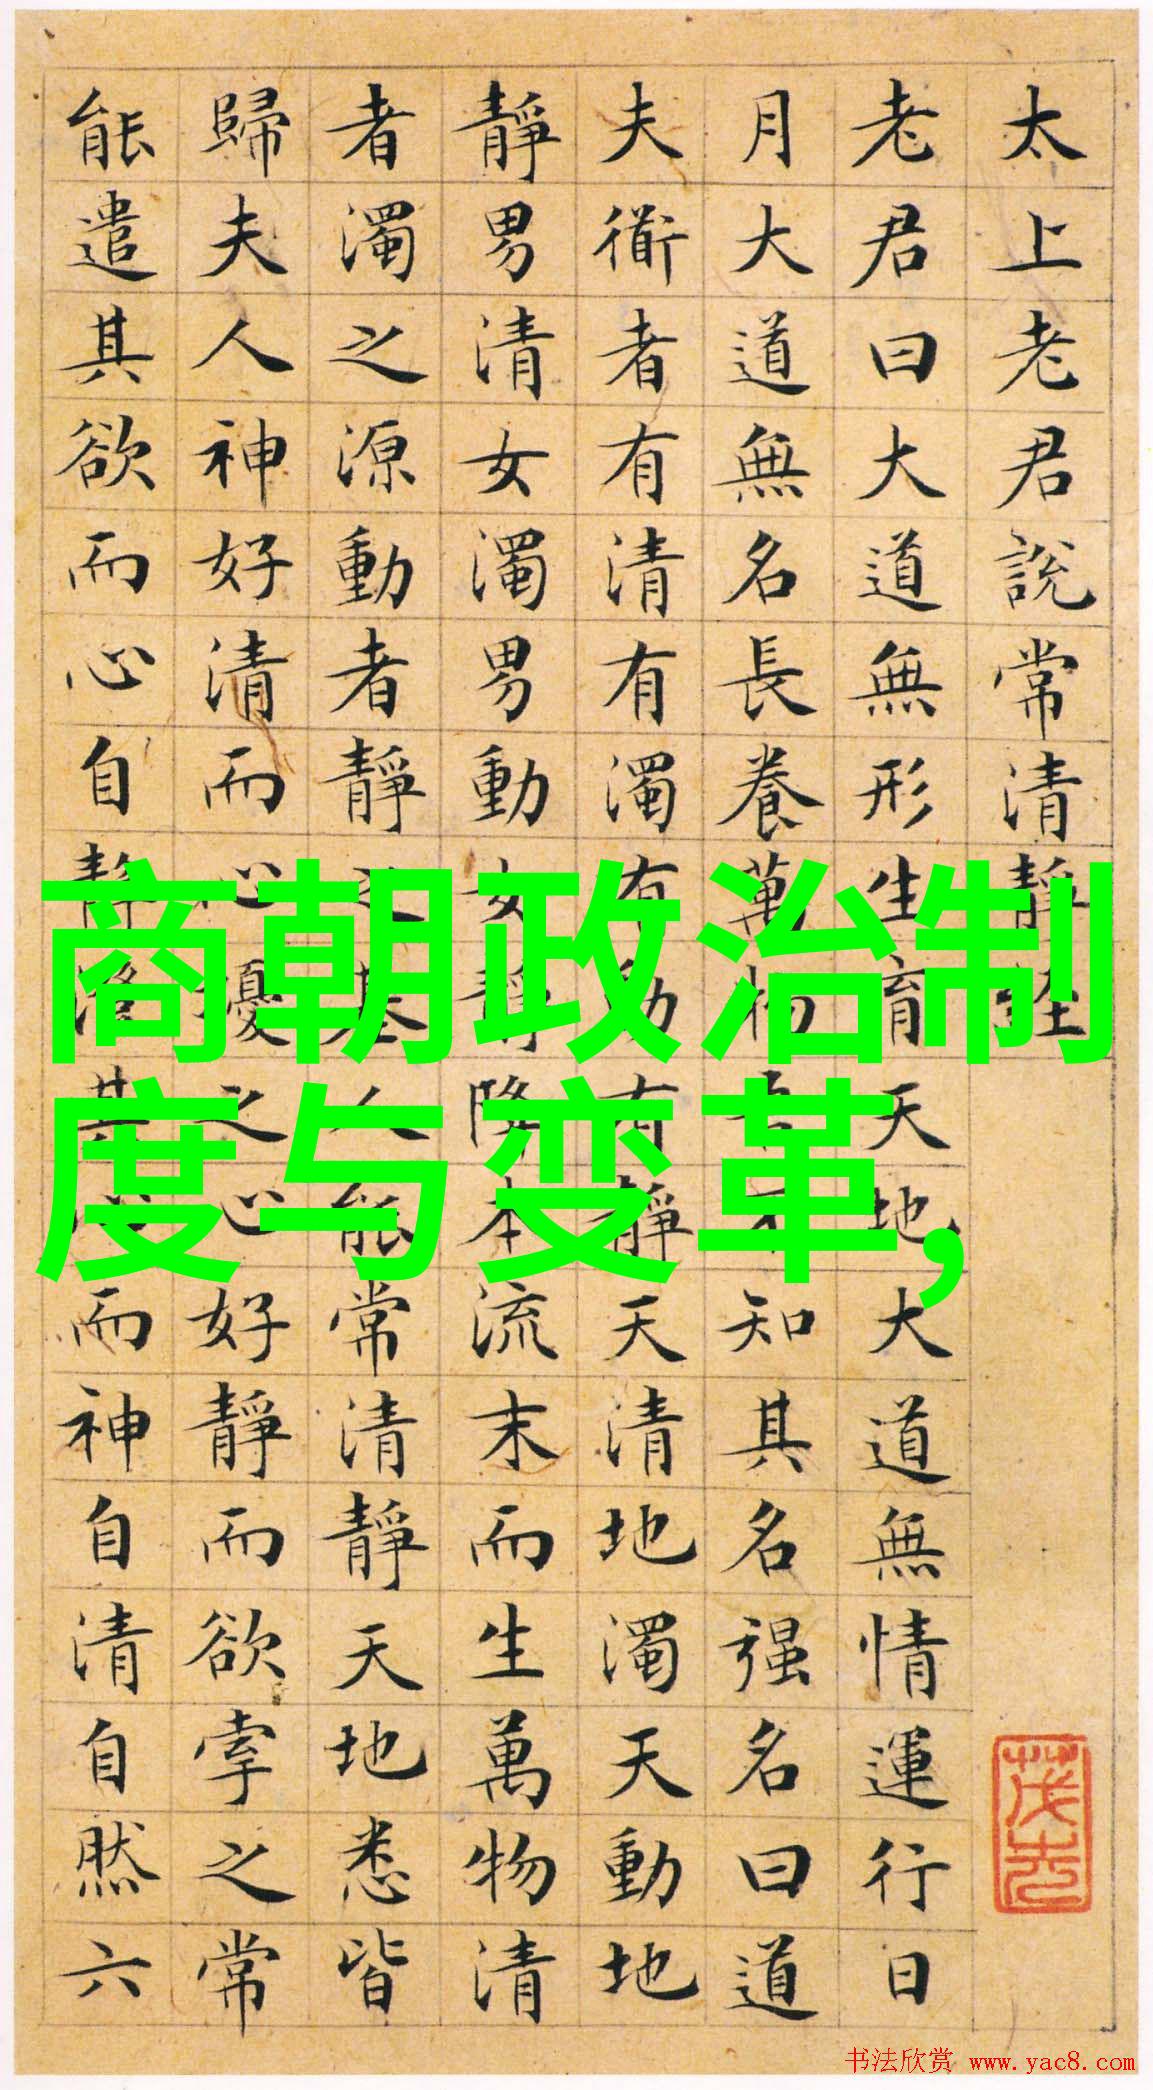 太上老君說常清靜經
老君曰大道無形生育天地大道無情運行日
月大道無名長養萬物吾不知其名强名曰道
夫衜者有清有濁有動有靜天清地濁天動地
靜男清女濁男動女靜降本流末而生萬物清
者濁之源動者靜之基人能常清靜天地悉皆
歸夫人神好清而心擾之心好靜而欲牽之常
能遣其欲而心自靜澄其心而神自清自然六
商朝政治制
度与变革,
书法欣赏 www.yac8.com